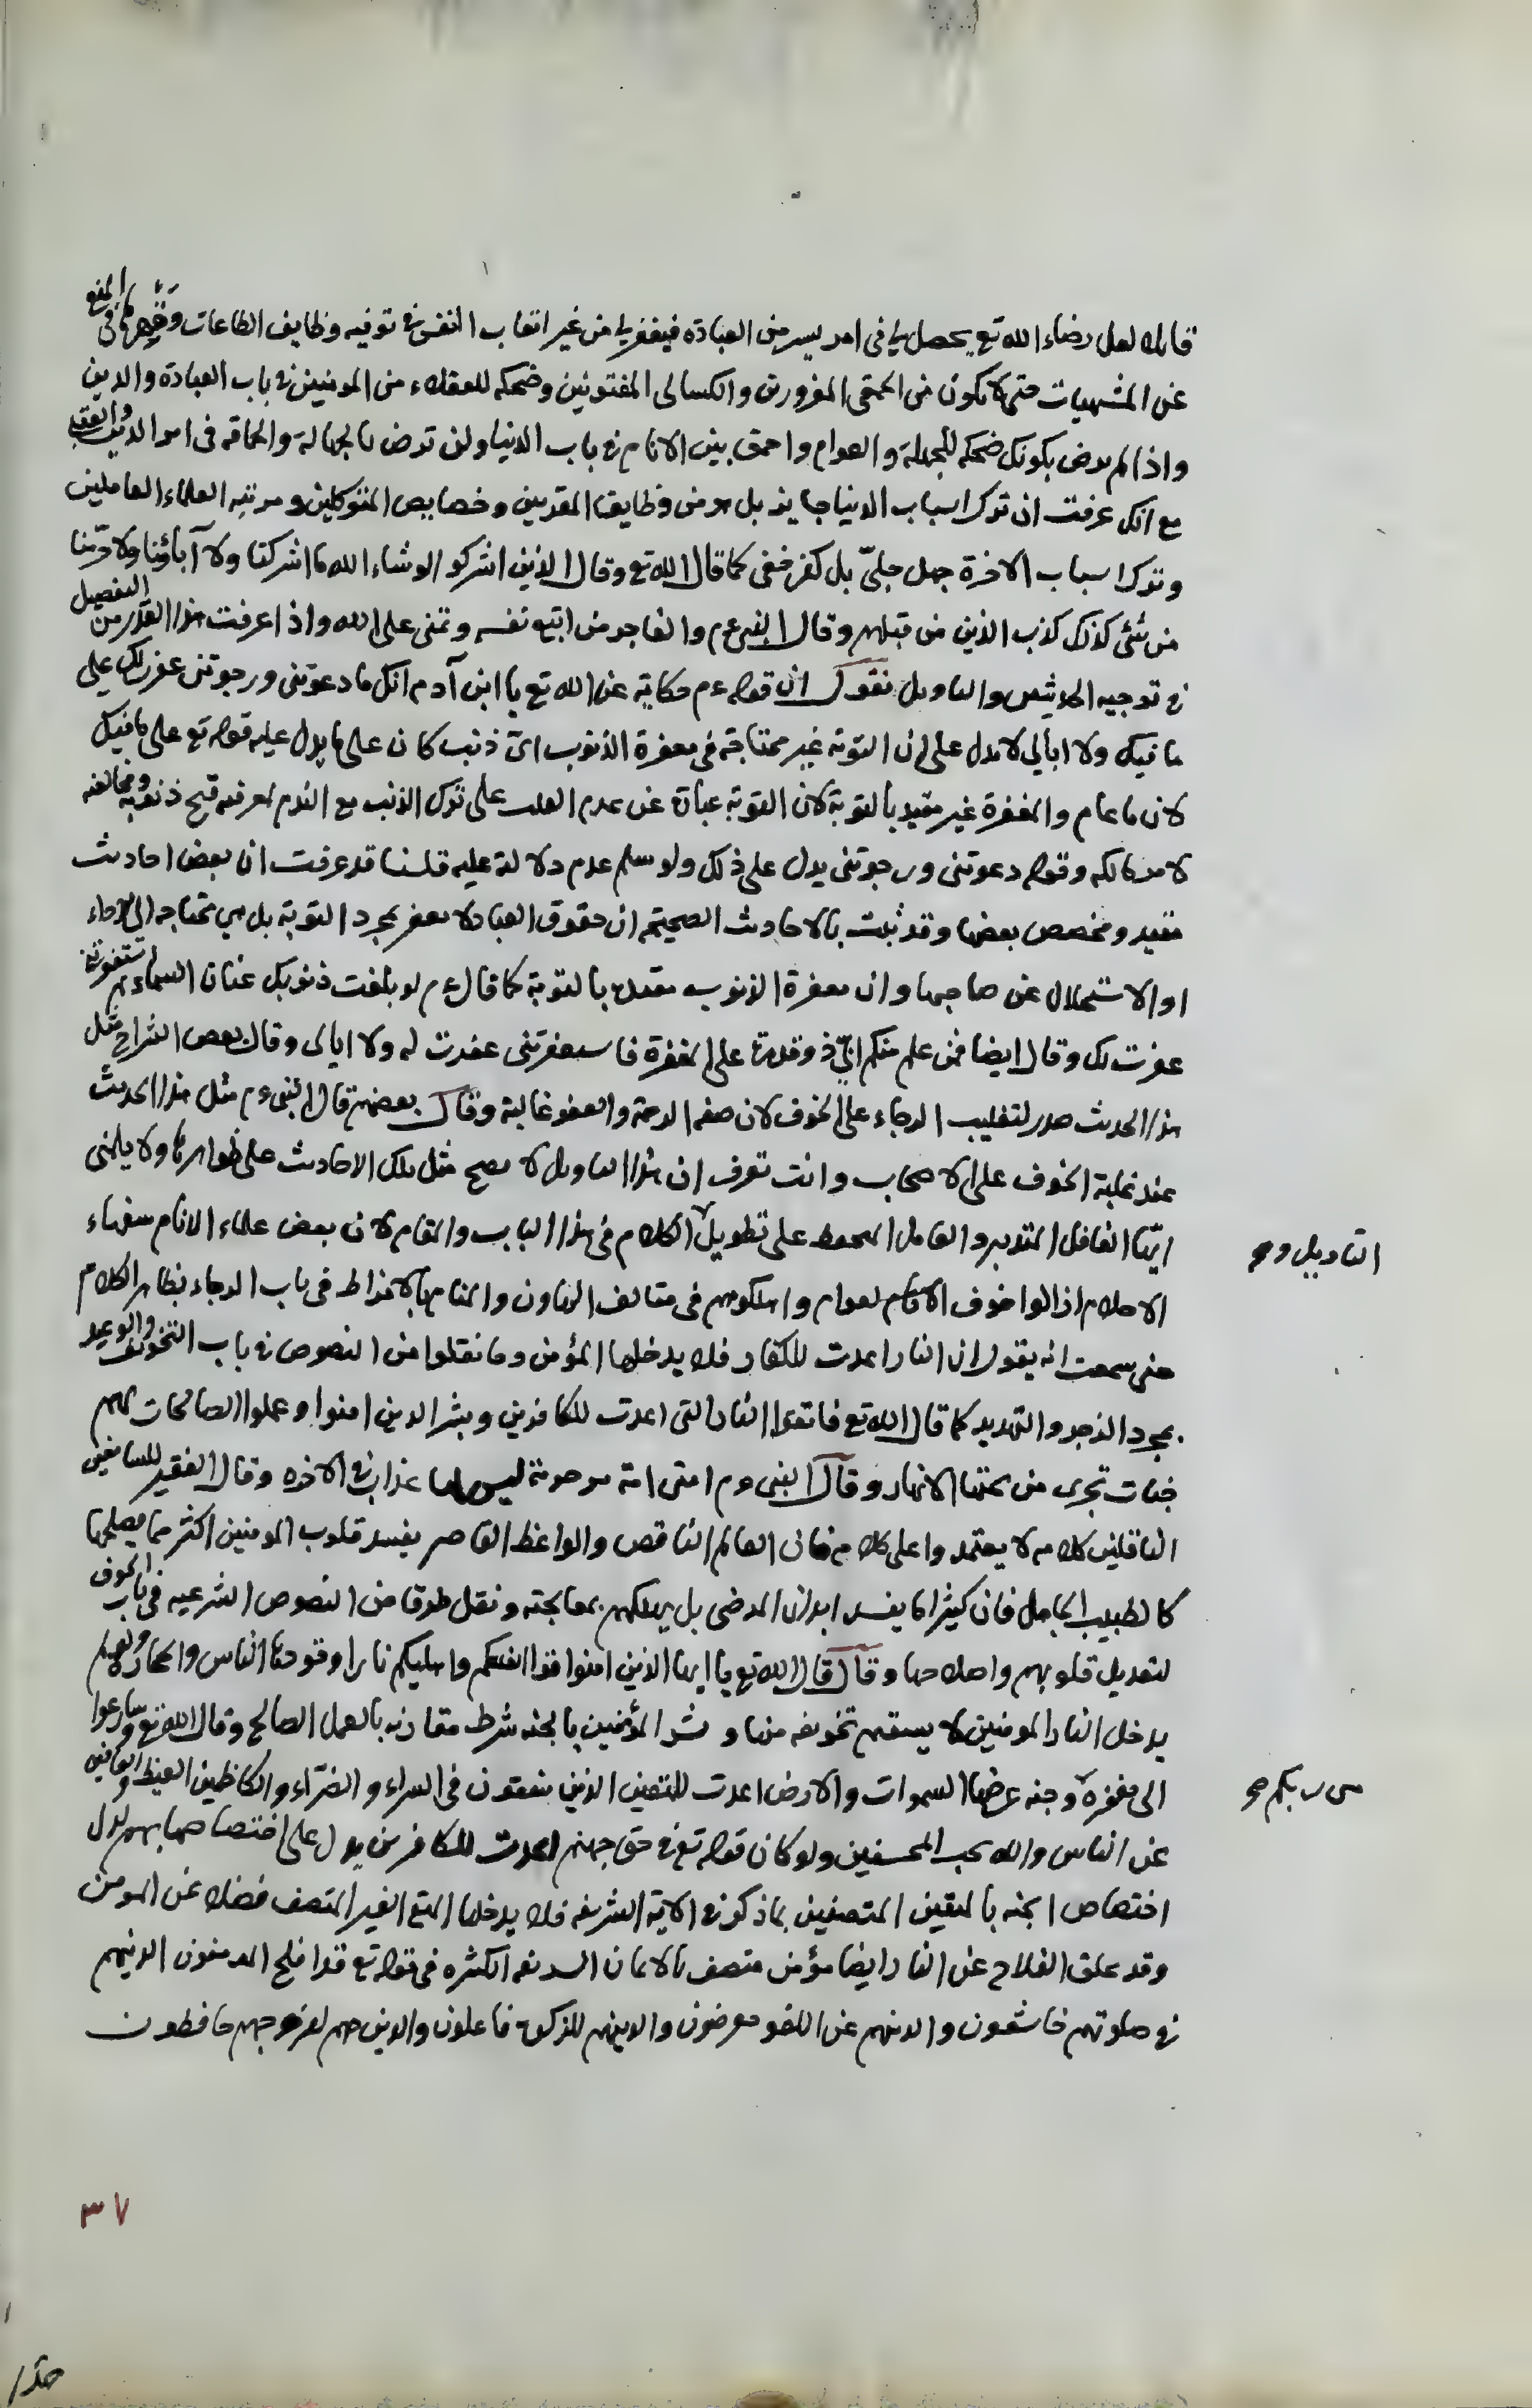 قائلا لعل رضاء الله تع يحصل لي في امر يسير من العبادة فيغفر لي من غير اتعاب النفس في توفيه وظايف الطاعات و المنع
عن المشهيات حتى لا تكون من الحمقى المغرورين والكسالى المفتونين وضحكه للعقلاء من المومنين في باب العبادة والدين
واذا لم يرض بكونك ضحكه للجهلة والعوام واحمق بين الانام في باب الدنيا ولن ترض بالجهالة والحماقه في امر الدين والعقبى
مع انك عرفت ان ترك اسباب الدنيا جايز بل هو من وظايف المقربين وخصايص المتوكلين ومرتبه العلماء العاملين
وترك اسباب الاخرة جهل جليّ بل كفر خفي كما قال الله تع وقال الذين اشركوا لو شاء الله ما اشركنا ولا آباؤنا ولا حرّمنا
من شئ كذلك كذب الذين من قبلهم وقال النبي عم والفاجر من اتبع نفسه وتمنى على الله واذا عرفت هذا القدر من التفصيل
في توجيه الحديثين والتاويل نقول ان قوله عم حكاية عن الله تع يا ابن آدم انك ما دعوتني ورجوتني غفرت لك على
ما فيك ولا ابالي لا يدل على ان التوبة غير محتاجة في مغفرة الذنوب ايّ ذنب كان على ما يدل عليه قوله تع على ما فيك
لان ما عام والمغفرة غير مقيد بالتوبة لان التوبة عبارة عن عدم على ترك الذنب مع الندم لمعرفه قبح ذنوبه ومخالفه
لامر مالكه وقوله دعوتني ورجوتني يدل على ذلك ولو سلم عدم دلالة عليه قلنا قد عرفت ان بعض احاديث
مقيد ومخصص بعضها وقد ثبت بالاحاديث الصحيحة ان حقوق العباد لا يغفر بمجرد التوبة بل هي محتاجه الى الاداء
او الاستحلال عن صاحبها وان مغفرة الذنوب مقيد بالتوبة كما قال عم لو بلغت ذنوبك عنان السماء ثم استغفرتني
غفرت لك وقال ايضا فمن علم منكم انّي ذو قدرة على المغفرة فاستغفرتني غفرت له ولا ابالي وقال بعض الشراح مثل
هذا الحديث صدر لتغليب الرجاء على الخوف لان صفه الرحمة والعفو غالبة وقال بعضهم قال النبي عم مثل هذا الحديث
عند غلبة الخوف على الاصحاب وانت تعرف ان هذا التاويل لا يصح مثل تلك الاحاديث على ظواهرها ولا يلمني
ايّها الغافل المتدبر والعاقل على تطويل الكلام في هذا الباب والمقام لان بعض علماء الانام سفهاء
التاويل و صح
الاحلام ازالوا خوف العوام واهلكوهم في متالف التهاون والمناهي بالافراط في باب الرجاء بظاهر الكلام
حتى سمعت انه يقول ان النار اعدت للكفار فلا يدخلها المؤمن وما نقلوا من النصوص في باب التخويف والوعيد
بمجرد الزجر والتهديد كما قال الله تع فاتقوا النار التي اعدت للكافرين وبشر الذين امنوا وعملوا الصالحات لهم
جنات تجري من تحتها الانهار وقال النبي عم امتي امة مرحومة ليس لها عذاب في الاخره وقال الفقير للسامعين
الناقلين كلامه لا يعتمدوا على كلامه فان العالم الناقص والواعظ القاصر يفسد قلوب المومنين اكثر مما يصلحها
كالطبيب الجاهل فان كثيرا ما يفسد ابدان المرضى بل يهلكهم بمعالجته ونقل طرقا من النصوص الشرعيه في باب الخوف
لتعديل قلوبهم واصلاحها وقال قال الله تع يا ايها الذين امنوا قوا انفسكم واهليكم نارا وقودها الناس والحجارة ولو لم
يدخل النار المومنين لا يستقيم تخويفه منها و بشر المؤمنين بالجنه شرط مقارنه بالعمل الصالح وقال الله تع وسارعوا
الى مغفرة وجنه عرضها السموات والارض اعدت للمتقين الذين ينفقون في السراء والضرّاء والكاظمين الغيظ والعافين
من ربكم صح
عن الناس والله يحب المحسنين ولو كان قوله تع في حق جهنم اعدت للكافرين يدل على اختصاصها بهم لدل
اختصاص الجنه بالمتقين المتصفين بما ذكر في الاية الشريفه فلا يدخلها المتقي الغير المتصف فضلا عن المومن
وقد علق الفلاح عن النار ايضا مؤمن متصف بالايمان الكثره في قوله تع قد افلح المومنون الذينهم
في صلوتهم خاشعون والذينهم عن اللغو معرضون والذينهم للزكوة فاعلون والذين هم لفروجهم حافظون
٣٧